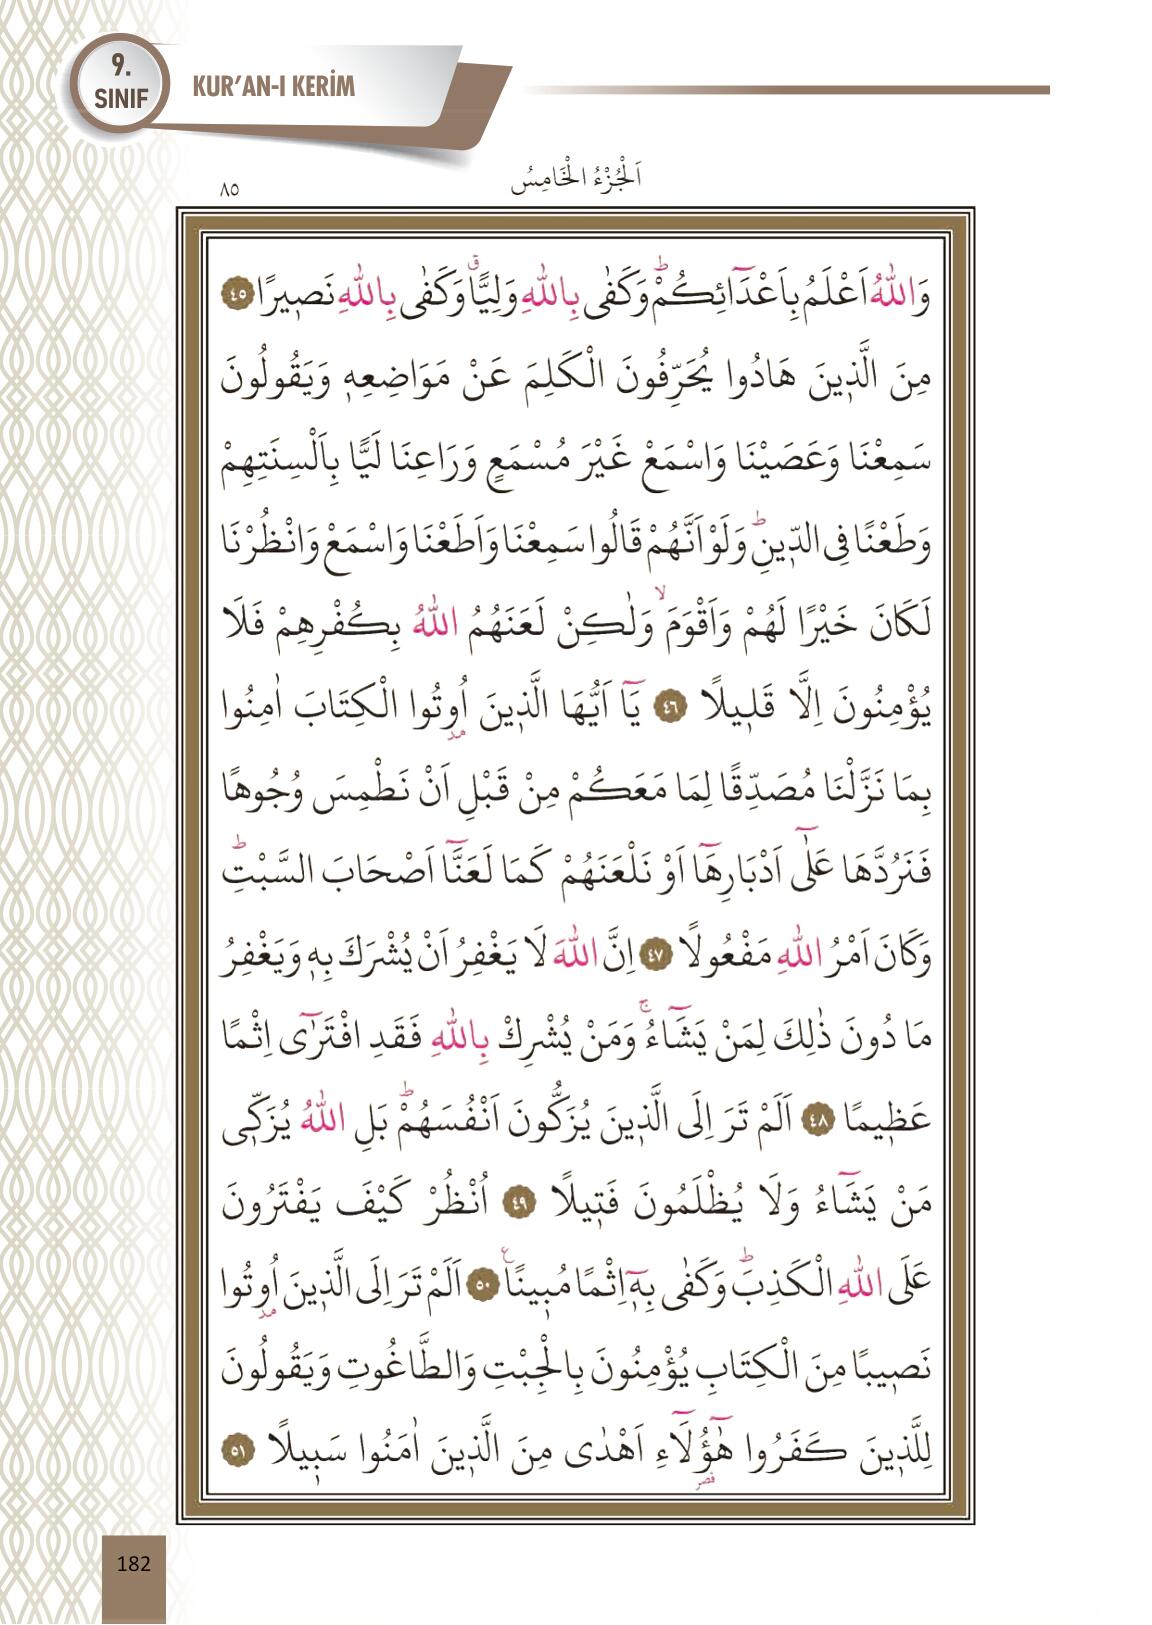 9.
SINIF
KUR'AN-I KERİM
اَلْجُزْءُ الْخَامِسُ
٨٥
وَاللّٰهُ اَعْلَمُ بِاَعْدَٓائِكُمْۜ وَكَفٰى بِاللّٰهِ وَلِيًّاۗ وَكَفٰى بِاللّٰهِ نَصٖيرًا ٤٥
مِنَ الَّذٖينَ هَادُوا يُحَرِّفُونَ الْكَلِمَ عَنْ مَوَاضِعِهٖ وَيَقُولُونَ
سَمِعْنَا وَعَصَيْنَا وَاسْمَعْ غَيْرَ مُسْمَعٍ وَرَاعِنَا لَيًّا بِاَلْسِنَتِهِمْ
وَطَعْنًا فِى الدّٖينِۜ وَلَوْ اَنَّهُمْ قَالُوا سَمِعْنَا وَاَطَعْنَا وَاسْمَعْ وَانْظُرْنَا
لَكَانَ خَيْرًا لَهُمْ وَاَقْوَمَۙ وَلٰكِنْ لَعَنَهُمُ اللّٰهُ بِكُفْرِهِمْ فَلَا
يُؤْمِنُونَ اِلَّا قَلٖيلًا ٤٦ يَٓا اَيُّهَا الَّذٖينَ اُو۫تُوا الْكِتَابَ اٰمِنُوا
بِمَا نَزَّلْنَا مُصَدِّقًا لِمَا مَعَكُمْ مِنْ قَبْلِ اَنْ نَطْمِسَ وُجُوهًا
فَنَرُدَّهَا عَلٰٓى اَدْبَارِهَٓا اَوْ نَلْعَنَهُمْ كَمَا لَعَنَّٓا اَصْحَابَ السَّبْتِۜ
وَكَانَ اَمْرُ اللّٰهِ مَفْعُولًا ٤٧ اِنَّ اللّٰهَ لَا يَغْفِرُ اَنْ يُشْرَكَ بِهٖ وَيَغْفِرُ
مَا دُونَ ذٰلِكَ لِمَنْ يَشَٓاءُۚ وَمَنْ يُشْرِكْ بِاللّٰهِ فَقَدِ افْتَرٰٓى اِثْمًا
عَظٖيمًا ٤٨ اَلَمْ تَرَ اِلَى الَّذٖينَ يُزَكُّونَ اَنْفُسَهُمْۜ بَلِ اللّٰهُ يُزَكّٖى
مَنْ يَشَٓاءُ وَلَا يُظْلَمُونَ فَتٖيلًا ٤٩ اُنْظُرْ كَيْفَ يَفْتَرُونَ
عَلَى اللّٰهِ الْكَذِبَۜ وَكَفٰى بِهٖٓ اِثْمًا مُبٖينًا۟ ٥٠ اَلَمْ تَرَ اِلَى الَّذٖينَ اُو۫تُوا
نَصٖيبًا مِنَ الْكِتَابِ يُؤْمِنُونَ بِالْجِبْتِ وَالطَّاغُوتِ وَيَقُولُونَ
لِلَّذٖينَ كَفَرُوا هٰٓؤُ۬لَٓاءِ اَهْدٰى مِنَ الَّذٖينَ اٰمَنُوا سَبٖيلًا ٥١
182